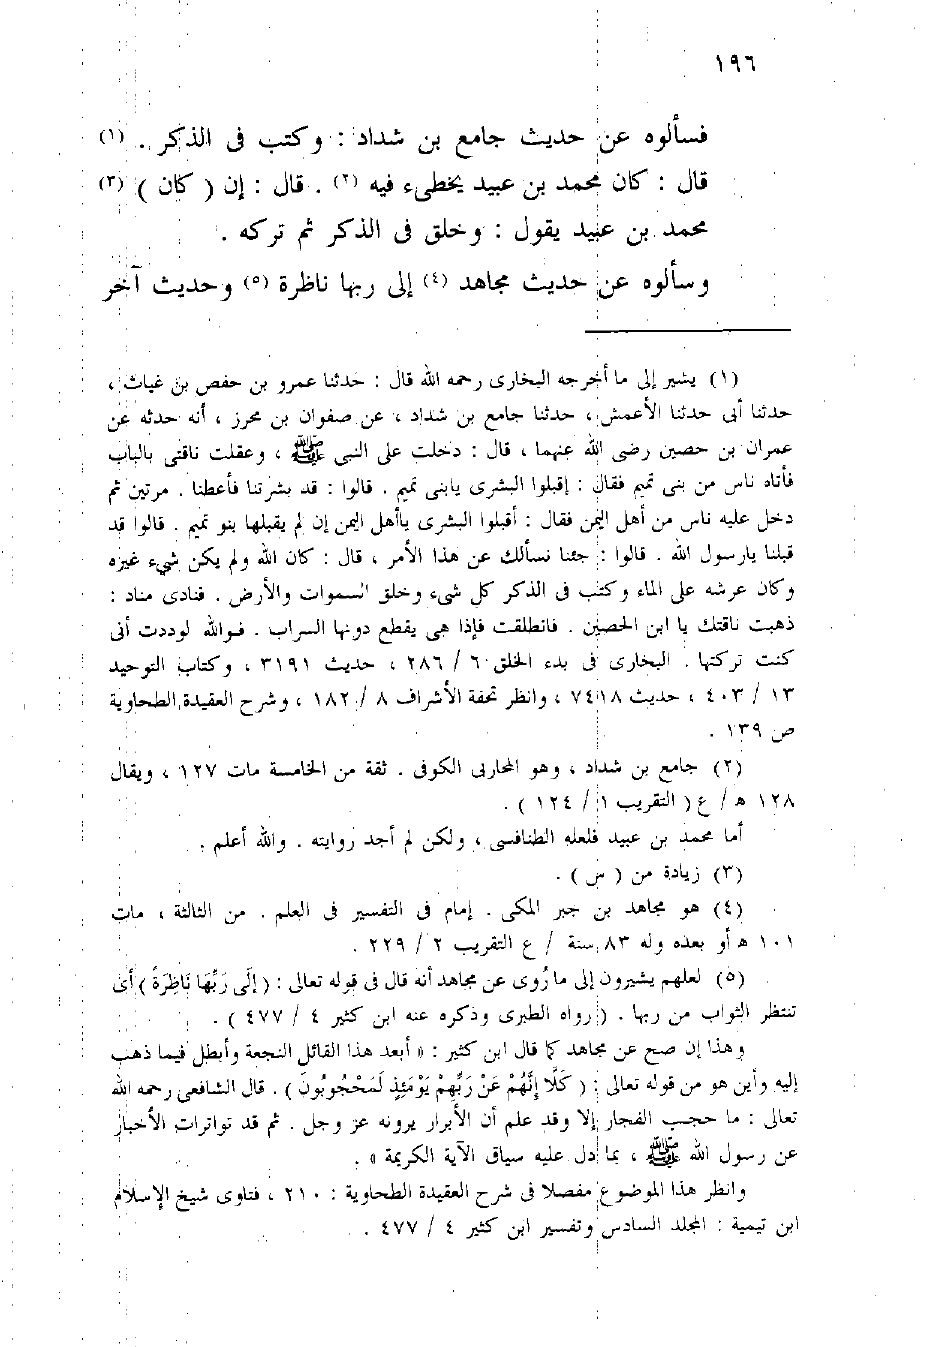 ١٩٦
فسألوه عن حديث جامع بن شداد : وكتب فى الذكر . (١)
قال : كان محمد بن عبيد يخطىء فيه (٢) . قال : إن ( كان ) (٣)
محمد بن عبيد يقول : وخلق فى الذكر ثم تركه .
وسألوه عن حديث مجاهد (٤) إلى ربها ناظرة (٥) وحديث آخر
(١) يشير إلى ما أخرجه البخارى رحمه الله قال : حدثنا عمرو بن حفص بن غياث ،
حدثنا أبى حدثنا الأعمش ، حدثنا جامع بن شداد ، عن صفوان بن محرز ، أنه حدثه عن
عمران بن حصين رضى الله عنهما ، قال : دخلت على النبى ﷺ ، وعقلت ناقتى بالباب
فأتاه ناس من بنى تميم فقال : إقبلوا البشرى يابنى تميم . قالوا : قد بشرتنا فأعطنا . مرتين ثم
دخل عليه ناس من أهل اليمن فقال : أقبلوا البشرى ياأهل اليمن إن لم يقبلها بنو تميم . قالوا قد
قبلنا يارسول الله . قالوا : جئنا نسألك عن هذا الأمر ، قال : كان الله ولم يكن شيء غيره
وكان عرشه على الماء وكتب فى الذكر كل شىء وخلق السموات والأرض . فنادى مناد :
ذهبت ناقتك يا ابن الحصين . فانطلقت فإذا هى يقطع دونها السراب . فوالله لوددت أنى
كنت تركتها . البخارى فى بدء الخلق ٦ / ٢٨٦ ، حديث ٣١٩١ ، وكتاب التوحيد
١٣ / ٤٠٣ ، حديث ٧٤١٨ ، وانظر تحفة الأشراف ٨ / ١٨٢ ، وشرح العقيدة الطحاوية
ص ١٣٩ .
(٢) جامع بن شداد ، وهو المحاربى الكوفى . ثقة من الخامسة مات ١٢٧ ، ويقال
١٢٨ هـ / ع ( التقريب ١ / ١٢٤ ) .
أما محمد بن عبيد فلعله الطنافسى ، ولكن لم أجد روايته . والله أعلم .
(٣) زيادة من ( س ) .
(٤) هو مجاهد بن جبر المكى . إمام فى التفسير فى العلم . من الثالثة ، مات
١٠١ هـ أو بعده وله ٨٣ سنة / ع التقريب ٢ / ٢٢٩ .
(٥) لعلهم يشيرون إلى ما رُوى عن مجاهد أنه قال فى قوله تعالى : ( إِلَى رَبِّهَا نَاظِرَةٌ ) أى
تنتظر الثواب من ربها . ( رواه الطبرى وذكره عنه ابن كثير ٤ / ٤٧٧ ) .
وهذا إن صح عن مجاهد كما قال ابن كثير : « أبعد هذا القائل النجعة وأبطل فيما ذهب
إليه وأين هو من قوله تعالى : ( كَلَّا إِنَّهُمْ عَنْ رَبِّهِمْ يَوْمَئِذٍ لَمَحْجُوبُونَ ) . قال الشافعى رحمه الله
تعالى : ما حجب الفجار إلا وقد علم أن الأبرار يرونه عز وجل . ثم قد تواترات الأخبار
عن رسول الله ﷺ ، بما دل عليه سياق الآية الكريمة » .
وانظر هذا الموضوع مفصلا فى شرح العقيدة الطحاوية : ٢١٠ ، فتاوى شيخ الإسلام
ابن تيمية : المجلد السادس وتفسير ابن كثير ٤ / ٤٧٧ .